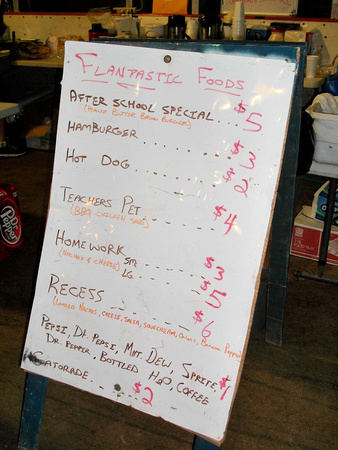 FLANTASTIC FOODS
AFTER SCHOOL SPECIAL... $5
(PEANUT BUTTER BACON BURGER)
HAMBURGER........ $3
HOT DOG....... $2
TEACHERS PET...... $4
(BBQ CHICKEN SAND)
HOMEWORK
(NACHOS & CHEESE) SM....... $3
LG....... $5
RECESS......... $6
(LOADED NACHOS, CHEESE, SALSA, SOURCREAM, ONIONS, BANANA PEPPERS)
PEPSI, DT. PEPSI, MNT. DEW, SPRITE $1
DR. PEPPER, BOTTLED H2O, COFFEE
GATORADE.... $2
Dr Pepper